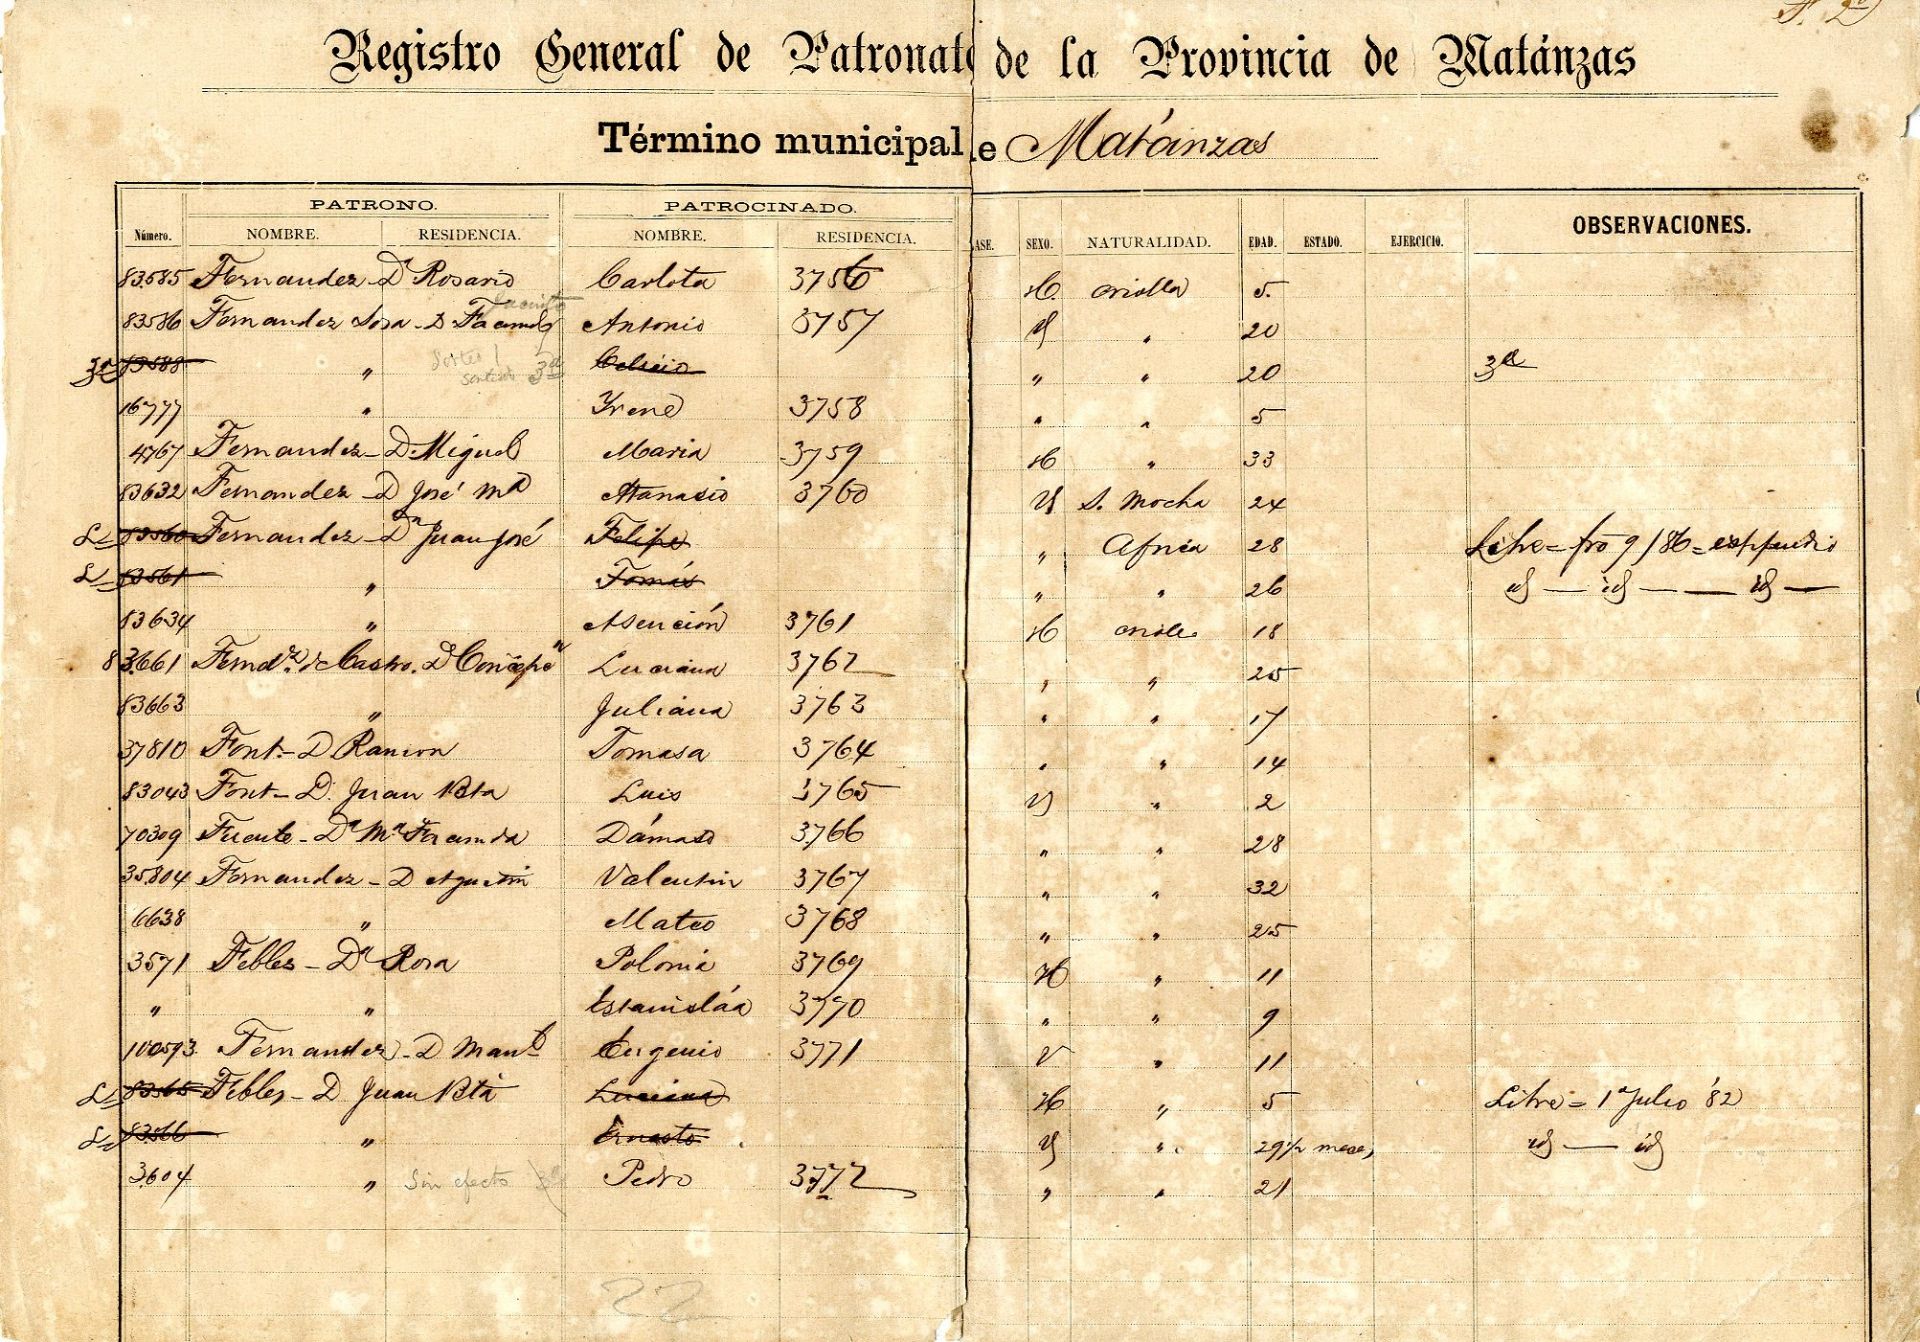 F. 2º
Registro General de Patronato de la Provincia de Matánzas
Término municipal de Matánzas
PATRONO. PATROCINADO.
Número. NOMBRE. RESIDENCIA. NOMBRE. RESIDENCIA. ASE. SEXO. NATURALIDAD. EDAD. ESTADO. EJERCICIO. OBSERVACIONES.
83.585 Fernandez - Dª Rosario Carlota 3756 H. criolla 5.
Jacinto
83586 Fernandez Sosa - D Antonio 3757 V " 20
3ª 83588 " 3ª " " 20 3ª
16777 " Yrene 3758 " " 5
4767 Fernandez - D. Miguel Maria 3759 H " 33
83632 Fernandez - D José Mª Atanasio 3760 V S. Mocha 24
L 83560 Fernandez - Dn Juan José Felipe " Africa 28 Libre = fro 9/86 =
L 83561 " Tomás " " 26 id — id — — id —
83634 " Asención 3761 H criolla 18
83661 Ferndz. de Castro. Dª Concepn Luciana 3762 " " 25
83663 " Juliana 3763 " " 17
37810 Font - D Ramon Tomasa 3764 " " 14
83043 Font - D. Juan Bta Luis 3765 V " 2
70309 Fuente - Dª Mª Facunda Dámaso 3766 " " 28
35.804 Fernandez - D Agustin Valentin 3767 " " 32
6638 " Mateo 3768 " " 25
3571 Febles - Dª Rosa Polonia 3769 H " 11
" " Estanisláa 3770 " " 9
100593 Fernandez - D Manl Eugenio 3771 V " 11
L 83565 Febles - D Juan Bta Luciana H " 5 Libre = 1º Julio '82
L 83566 " Ernesto V " 29 1/2 meses id — id
3.604 " Sin efecto Pedro 3772 " " 21
22